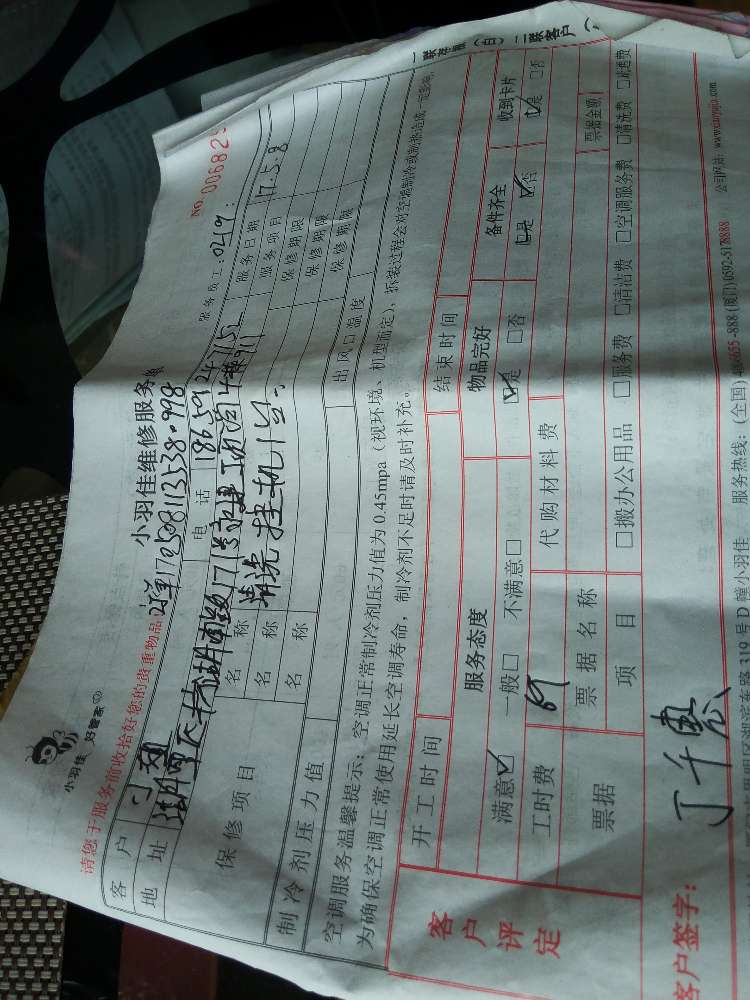 小羽佳 好管家
请您于服务前收拾好您的贵重物品
小羽佳维修服务
NO.006829
170508113538·998
服务员工:0219
客户
电话
服务日期
17.5.8
地址
服务项目
保修项目
名称
清洗挂机1台
保修期限
名称
保修期限
名称
保修期限
制冷剂压力值
出风口温度
空调服务温馨提示:空调正常制冷剂压力值为0.45mpa(视环境、机型而定),拆装过程会对空调制冷或制热造成一定影响,
为确保空调正常使用延长空调寿命,制冷剂不足时请及时补充。
客户评定
开工时间
结束时间
服务态度
物品完好
备件齐全
收到卡片
满意☑ 一般□ 不满意□
☑是 □否
□是 ☑否
☑是 □否
工时费
69
代购材料费
票据
票据名称
票据金额
项目
□搬办公用品 □服务费 □清洁费 □空调服务费 □清洗费 □疏通费
客户签字:
丁千惠
319号D幢小羽佳
服务热线:(全国)
-888(厦门)0592-5178888
公司网站: